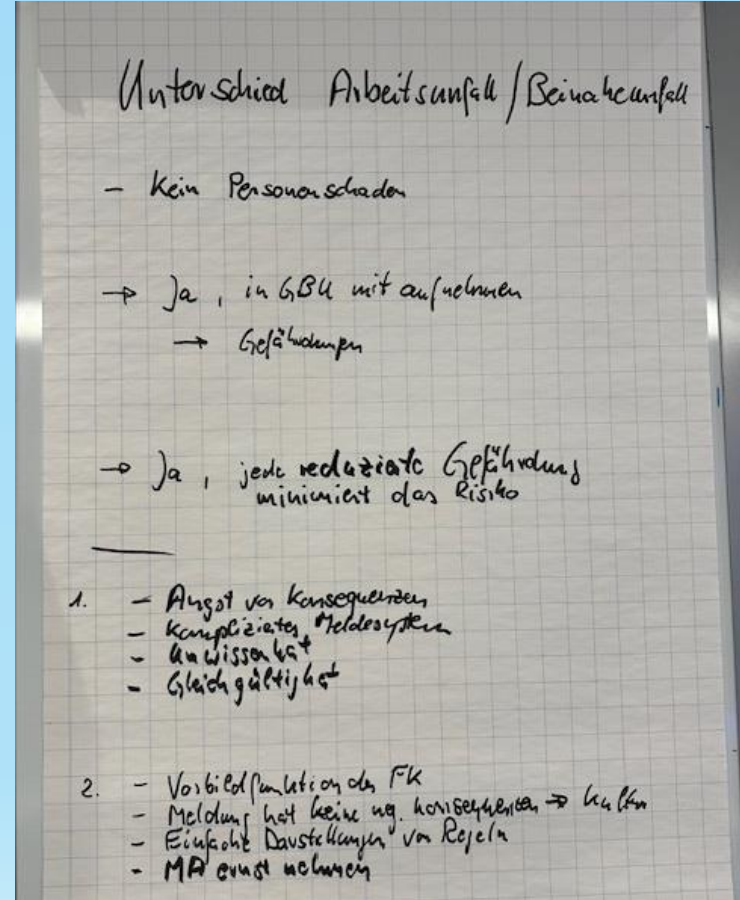 Unterschied Arbeitsunfall / Beinaheunfall
- Kein Personenschaden
→ Ja, in GBU mit aufnehmen
→ Gefährdungen
→ Ja, jede reduzierte Gefährdung
minimiert das Risiko
1. - Angst vor Konsequenzen
- Kompliziertes Meldesystem
- Unwissenheit
- Gleichgültigkeit
2. - Vorbildfunktion der FK
- Meldung hat keine neg. Konsequenzen → Kultur
- Einfache Darstellungen von Regeln
- MA ernst nehmen